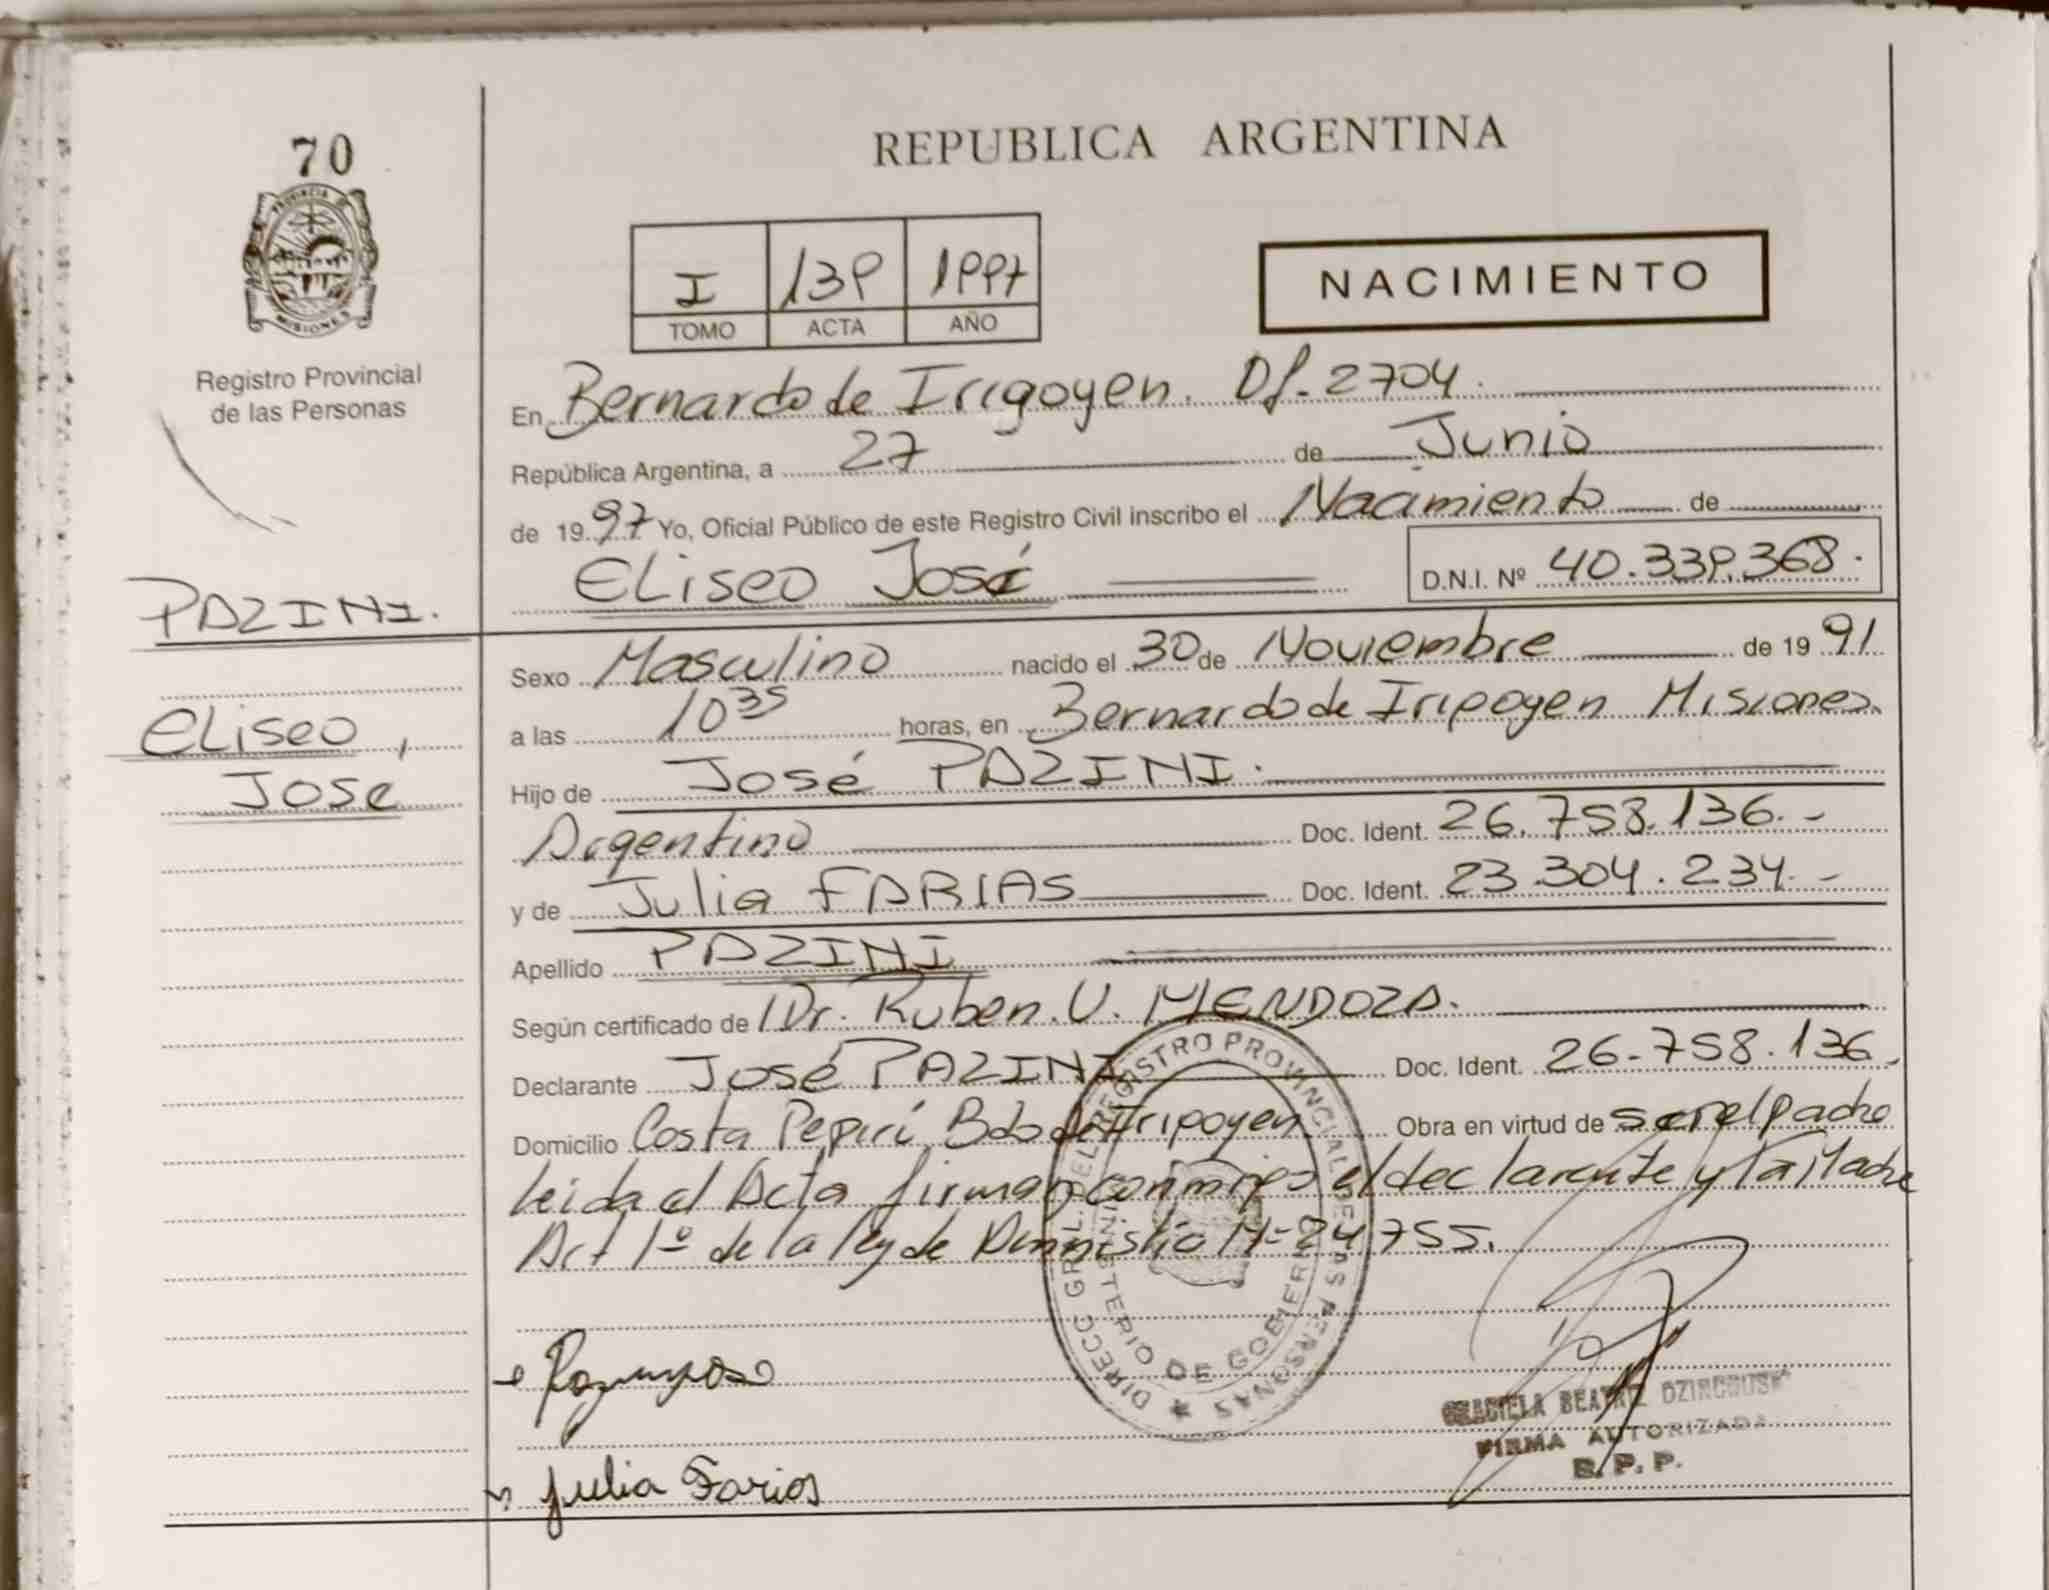 70
PROVINCIA DE
MISIONES
Registro Provincial
de las Personas
REPUBLICA ARGENTINA
I 139 1997
TOMO ACTA AÑO
NACIMIENTO
En Bernardo de Irigoyen. Df. 2704.
República Argentina, a 27 de Junio
de 1997 Yo, Oficial Público de este Registro Civil inscribo el Nacimiento de
Eliseo José D.N.I. Nº 40.339.368.
PAZINI.
Eliseo,
Jose
Sexo Masculino nacido el 30 de Noviembre de 1991
a las 10 35 horas, en Bernardo de Irigoyen Misiones.
Hijo de José PAZINI.
Argentino Doc. Ident. 26.758.136.-
y de Julia FARIAS Doc. Ident. 23.304.234.-
Apellido PAZINI
Según certificado de Dr. Ruben. U. MENDOZA.
Declarante José PAZINI Doc. Ident. 26-758.136.
Domicilio Costa Pepirí Bdo de Irigoyen Obra en virtud de ser el padre
leida el Acta firman conmigo el declarante y la Madre
Art 1º de la ley de Amnistia Nº 24.755.
DIRECC GRAL. DEL REGISTRO PROVINCIAL DE LAS PERSONAS
MINISTERIO DE GOBIERNO
Julia Farias
GRACIELA BEATRIZ
FIRMA AUTORIZADA
R. P. P.